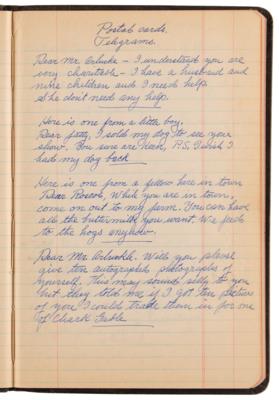 Postal cards.
Telegrams.
Dear Mr. Arbuckle - I understand you are
very charitable - I have a husband and
nine children and I need help
She don't need any help.
Here is one from a little boy.
Dear fatty, I sold my dog to see your
show. You sure are P.S. I wish I
had my dog back
Here is one from a fellow here in town
Dear Roscoe, While you are in town,
come on out to my farm. You can have
all the buttermilk you want. We feed
to the hogs anyhow.
Dear Mr. Arbuckle. Will you please
give ten autographed photographs of
yourself. This may sound silly to you
but they told me if I got ten pictures
of you I could trade them in for one
of Clark Gable